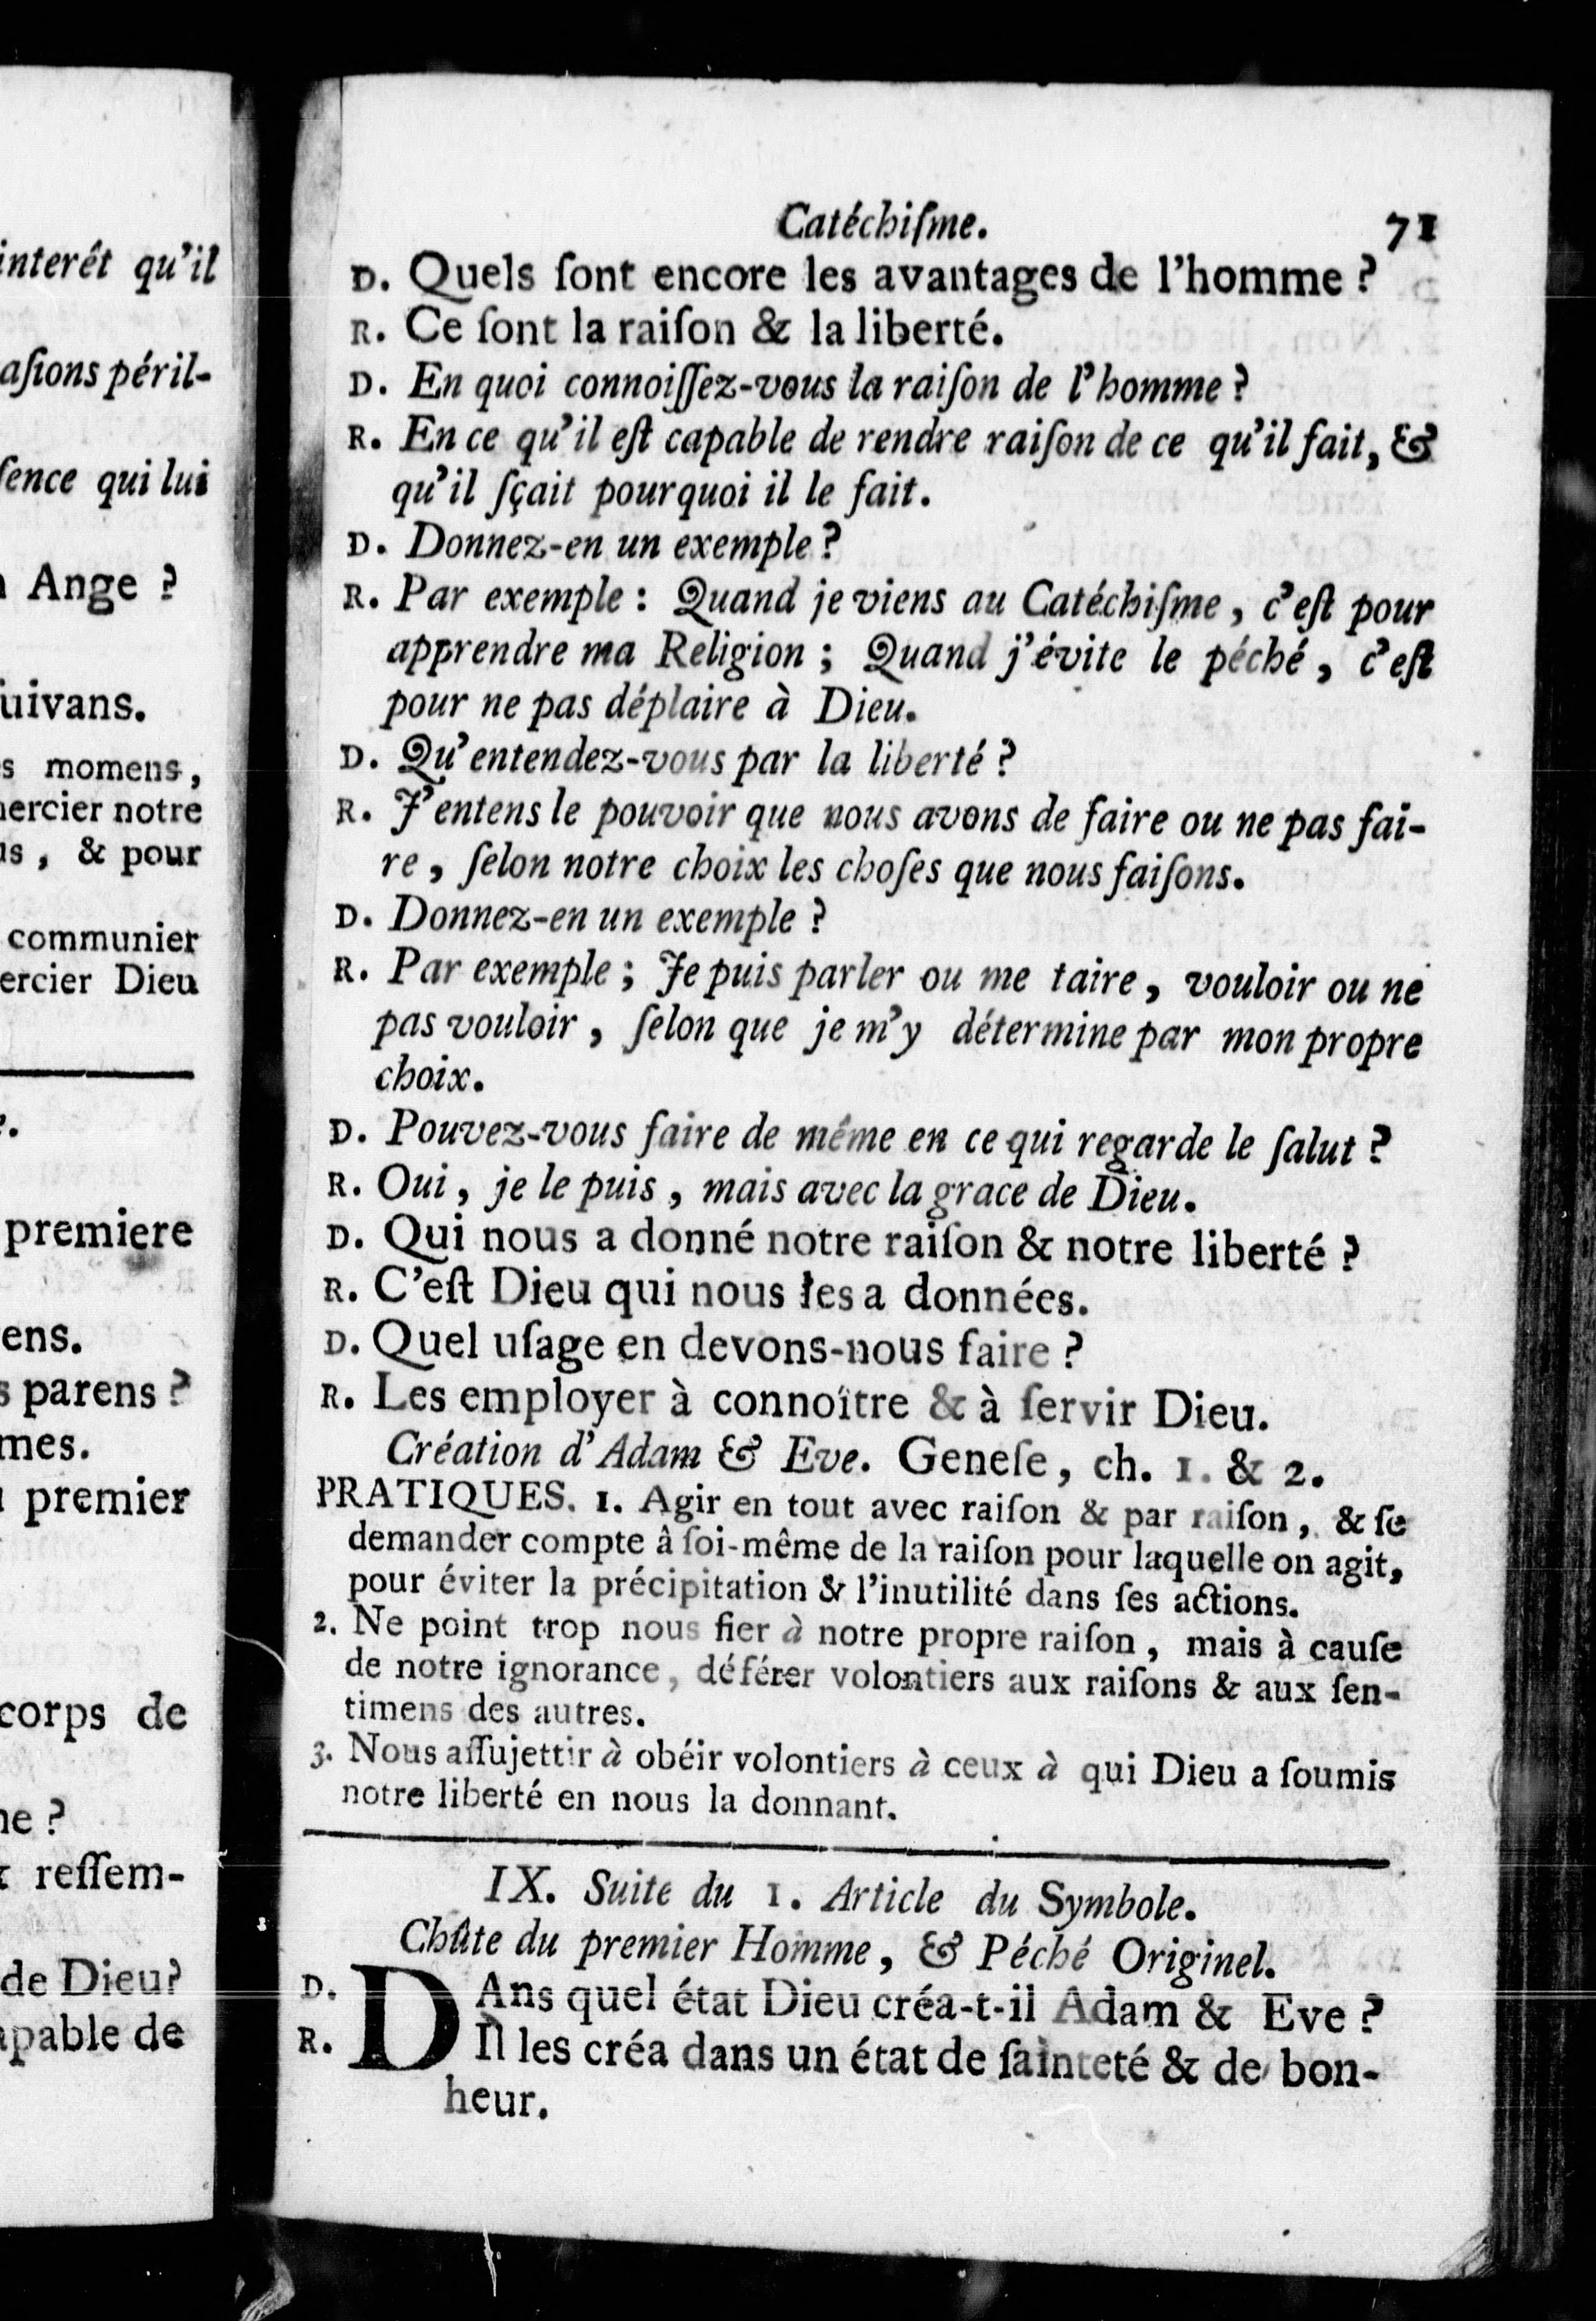 interêt qu'il
aſions péril-
ſence qui lui
Ange ?
uivans.
s momens,
mercier notre
us, & pour
communier
ercier Dieu
premiere
ens.
s parens ?
mes.
premier
corps de
ne ?
& reſſem-
de Dieu ?
apable de
Catéchiſme. 71
D. Quels ſont encore les avantages de l'homme ?
R. Ce ſont la raiſon & la liberté.
D. En quoi connoiſſez-vous la raiſon de l'homme ?
R. En ce qu'il eſt capable de rendre raiſon de ce qu'il fait, &
qu'il ſçait pourquoi il le fait.
D. Donnez-en un exemple ?
R. Par exemple : Quand je viens au Catéchiſme, c'eſt pour
apprendre ma Religion ; Quand j'évite le péché, c'eſt
pour ne pas déplaire à Dieu.
D. Qu'entendez-vous par la liberté ?
R. J'entens le pouvoir que nous avons de faire ou ne pas fai-
re, ſelon notre choix les choſes que nous faiſons.
D. Donnez-en un exemple ?
R. Par exemple ; Je puis parler ou me taire, vouloir ou ne
pas vouloir, ſelon que je m'y détermine par mon propre
choix.
D. Pouvez-vous faire de même en ce qui regarde le ſalut ?
R. Oui, je le puis, mais avec la grace de Dieu.
D. Qui nous a donné notre raiſon & notre liberté ?
R. C'eſt Dieu qui nous les a données.
D. Quel uſage en devons-nous faire ?
R. Les employer à connoître & à ſervir Dieu.
Création d'Adam & Eve. Geneſe, ch. 1. & 2.
PRATIQUES. 1. Agir en tout avec raiſon & par raiſon, & ſe
demander compte â ſoi-même de la raiſon pour laquelle on agit,
pour éviter la précipitation & l'inutilité dans ſes actions.
2. Ne point trop nous fier à notre propre raiſon, mais à cauſe
de notre ignorance, déférer volontiers aux raiſons & aux ſen-
timens des autres.
3. Nous aſſujettir à obéir volontiers à ceux à qui Dieu a ſoumis
notre liberté en nous la donnant.
IX. Suite du 1. Article du Symbole.
Chûte du premier Homme, & Péché Originel.
D. DAns quel état Dieu créa-t-il Adam & Eve ?
R. Il les créa dans un état de ſainteté & de bon-
heur.